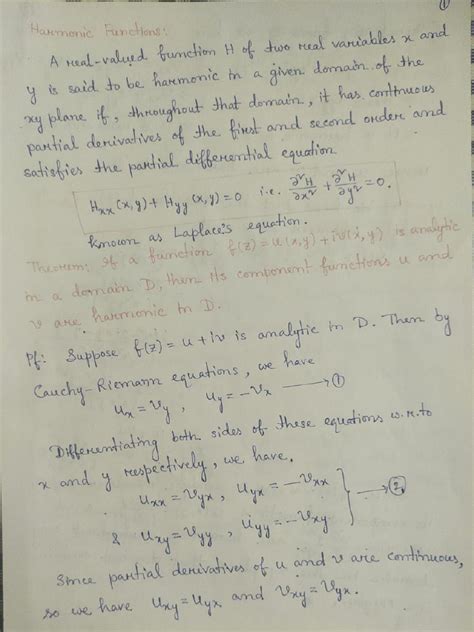 ①
Harmonic Functions:
A real-valued function H of two real variables x and
y is said to be harmonic in a given domain of the
xy plane if, throughout that domain, it has continuous
partial derivatives of the first and second order and
satisfies the partial differential equation
Hxx(x,y) + Hyy(x,y) = 0 i.e. ∂²H/∂x² + ∂²H/∂y² = 0.
known as Laplace's equation.
Theorem: If a function f(z) = u(x,y) + iv(x,y) is analytic
in a domain D, then its component functions u and
v are harmonic in D.
Pf: Suppose f(z) = u + iv is analytic in D. Then by
Cauchy-Riemann equations, we have
ux = vy, uy = -vx → ①
Differentiating both sides of these equations w.r.to
x and y respectively, we have,
uxx = vyx, uyx = -vxx
& uxy = vyy, uyy = -vxy } → ②
Since partial derivatives of u and v are continuous,
so we have uxy = uyx and vxy = vyx.